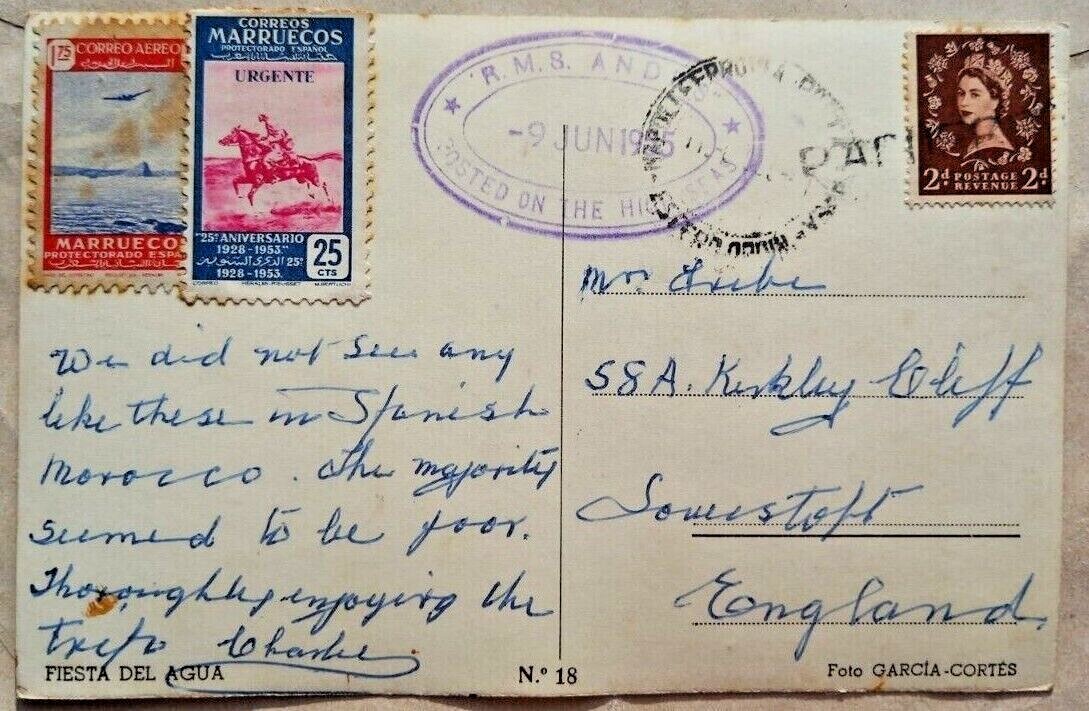 1.75 CORREO AEREO
MARRUECO
PROTECTORADO ESPAÑ
CORREOS
MARRUECOS
PROTECTORADO ESPAÑOL
URGENTE
"25º ANIVERSARIO
1928-1953."
25º الذكرى السنوية
1928-1953.
25
CTS
R.M.S. AND
-9 JUN 1955
POSTED ON THE HIGH SEAS
2d POSTAGE 2d
REVENUE
We did not see any
like these in Spanish
Morocco. The majority
seemed to be poor.
Thoroughly enjoying the
trip Charlie
Mrs
58A. Kirkley Cliff
Lowestoft
England
FIESTA DEL AGUA
N.º 18
Foto GARCÍA-CORTÉS